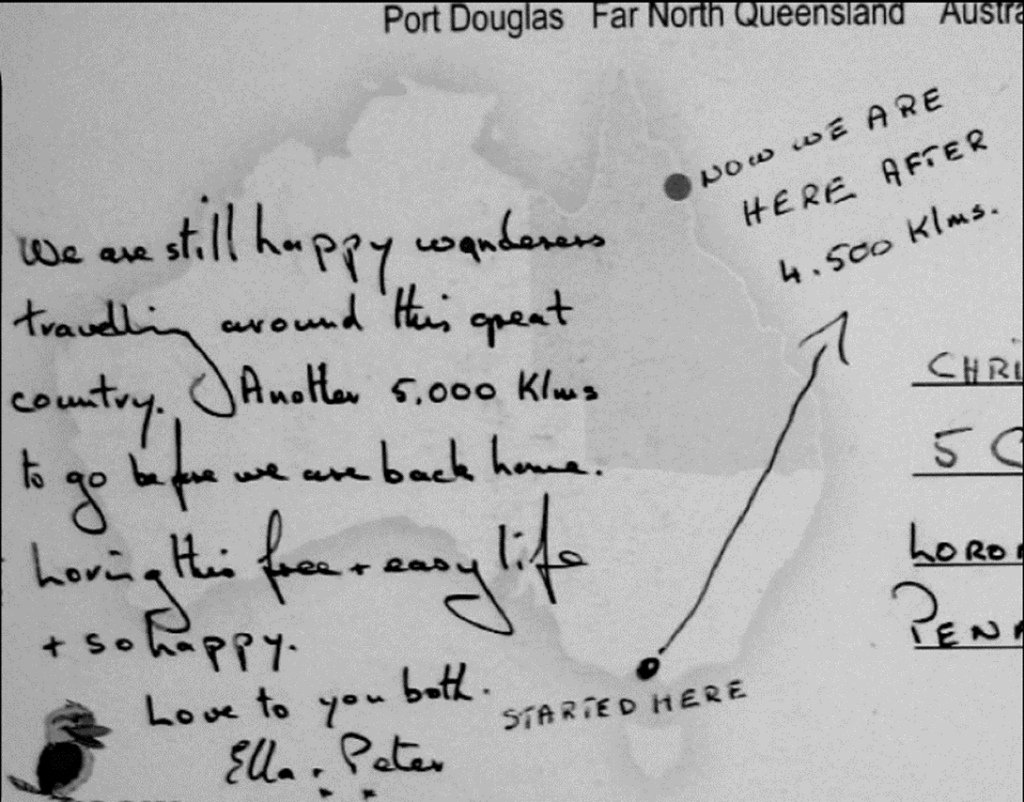 Port Douglas Far North Queensland Austra
NOW WE ARE
HERE AFTER
4.500 Klms.
We are still happy wanderers
travelling around this great
country. Another 5.000 Klms
to go before we are back home.
Loving this free + easy life
+ so happy.
Love to you both.
Ella + Peter
STARTED HERE
CHRI
5 C
LORD
PEN